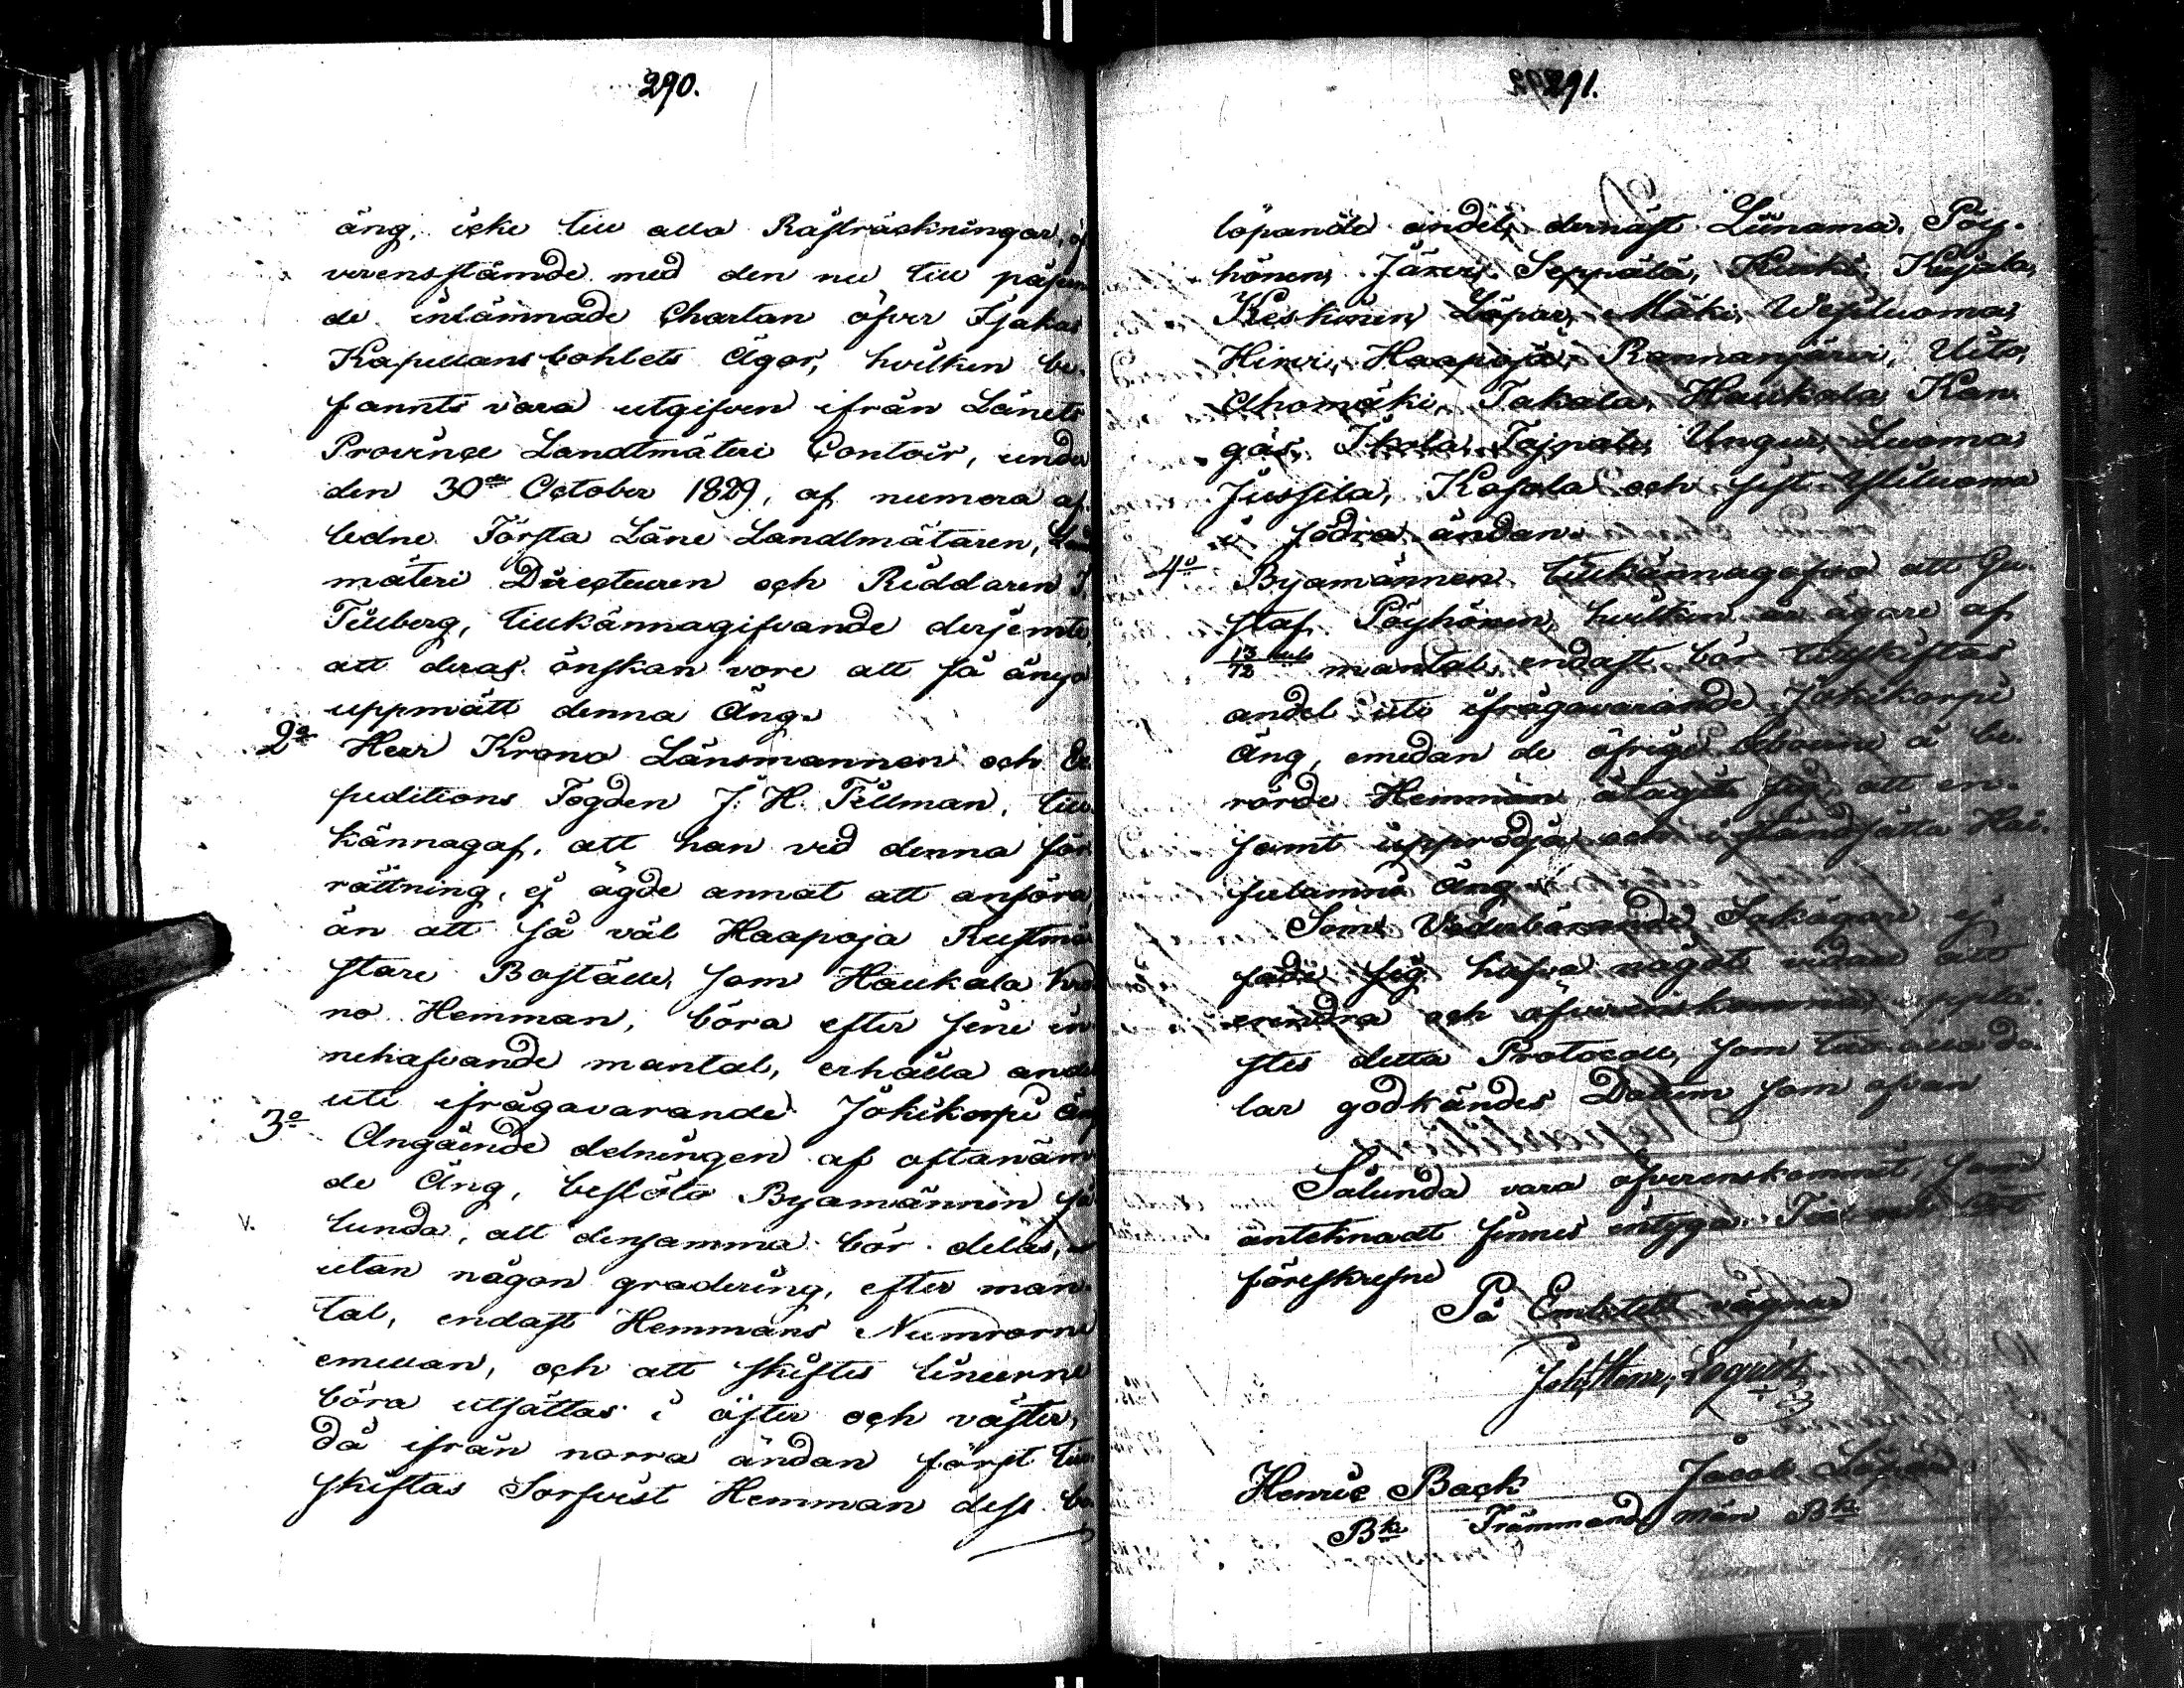 290.
äng, icke till alla Råsträckningar, öf
verensstämde med den nu till påseen
de inlämnade Chartan öfver Tjäkas
Kapellans bohlets Ägor, hvilken be-
fannts vara utgifven ifrån Länets
Province Landtmäteri Contoir, under
den 30de October 1829, af numera af
ledne Första Läne Landtmätaren, Land
mäteri Directeuren och Riddaren J.
Tillberg, tillkännagifvande derjemte
att deras önskan vore att få änya
uppmätt denna Äng.
2o Herr Krono Länsmannen och Ex
peditions Fogden J. H. Tillman, till
kännagaf, att han vid denna för
rättning, ej ägde annat att anföra,
än att så väl Haapoja Rustmä
stare Boställe, som Haukala Kro
no Hemman, böra efter sine in
nehafvande mantal, erhålla andel
uti ifrågavarande Jokikorpi Äng
3o Angående delningen af oftanäm
de Äng, beslöto Byamännen så
lunda, att densamma bör delas,
utan någon gradering, efter man-
tal, endast Hemmans Numrorne
emellan, och att skiftes linierne
böra utsättas i öster och väster,
då ifrån norra ändan först till
skiftas Sorfvist Hemman dess be
291.
löpande andel, dernäst Liinama, Pöy-
hönen, Järvi, Seppälä, Kirkä, Kujala,
Keskinen, Löpar, Mäki, Wesiluoma,
Hirvi, Haapoja, Rannanjärvi, Uito,
Ahomäki, Takala, Haukala, Kan-
gas, Ikola, Tojnala, Ungur, Luoma
Jussila, Kasola och sist Yliluoma
i södra ändan.
4o Byamännen tillkännagofvo att Gu-
staf Pöyhönen, hvilken är ägare af
13/72 mantal, endast bör tillskiftas
andel uti ifrågavarande Jokikorpi
Äng, emedan de öfrige Åboerne å be-
rörde Hemman åtagit sig, att en-
samt upprödja och i stånd sätta
äng.
Som Vederbörande Sakägare ej
sade sig hafva något vidare att
erindra och öfverenskomma, upplä-
stes detta Protocoll, som till alla de-
lar godkändes Datum som ofvan
Sålunda vara öfverenskommit, som
antecknadt finnes intyga Tid och Ort
föreskrefne
På Embetets vägnar
Henric Back Jacob Löpar
Bk Främmande Män Bk